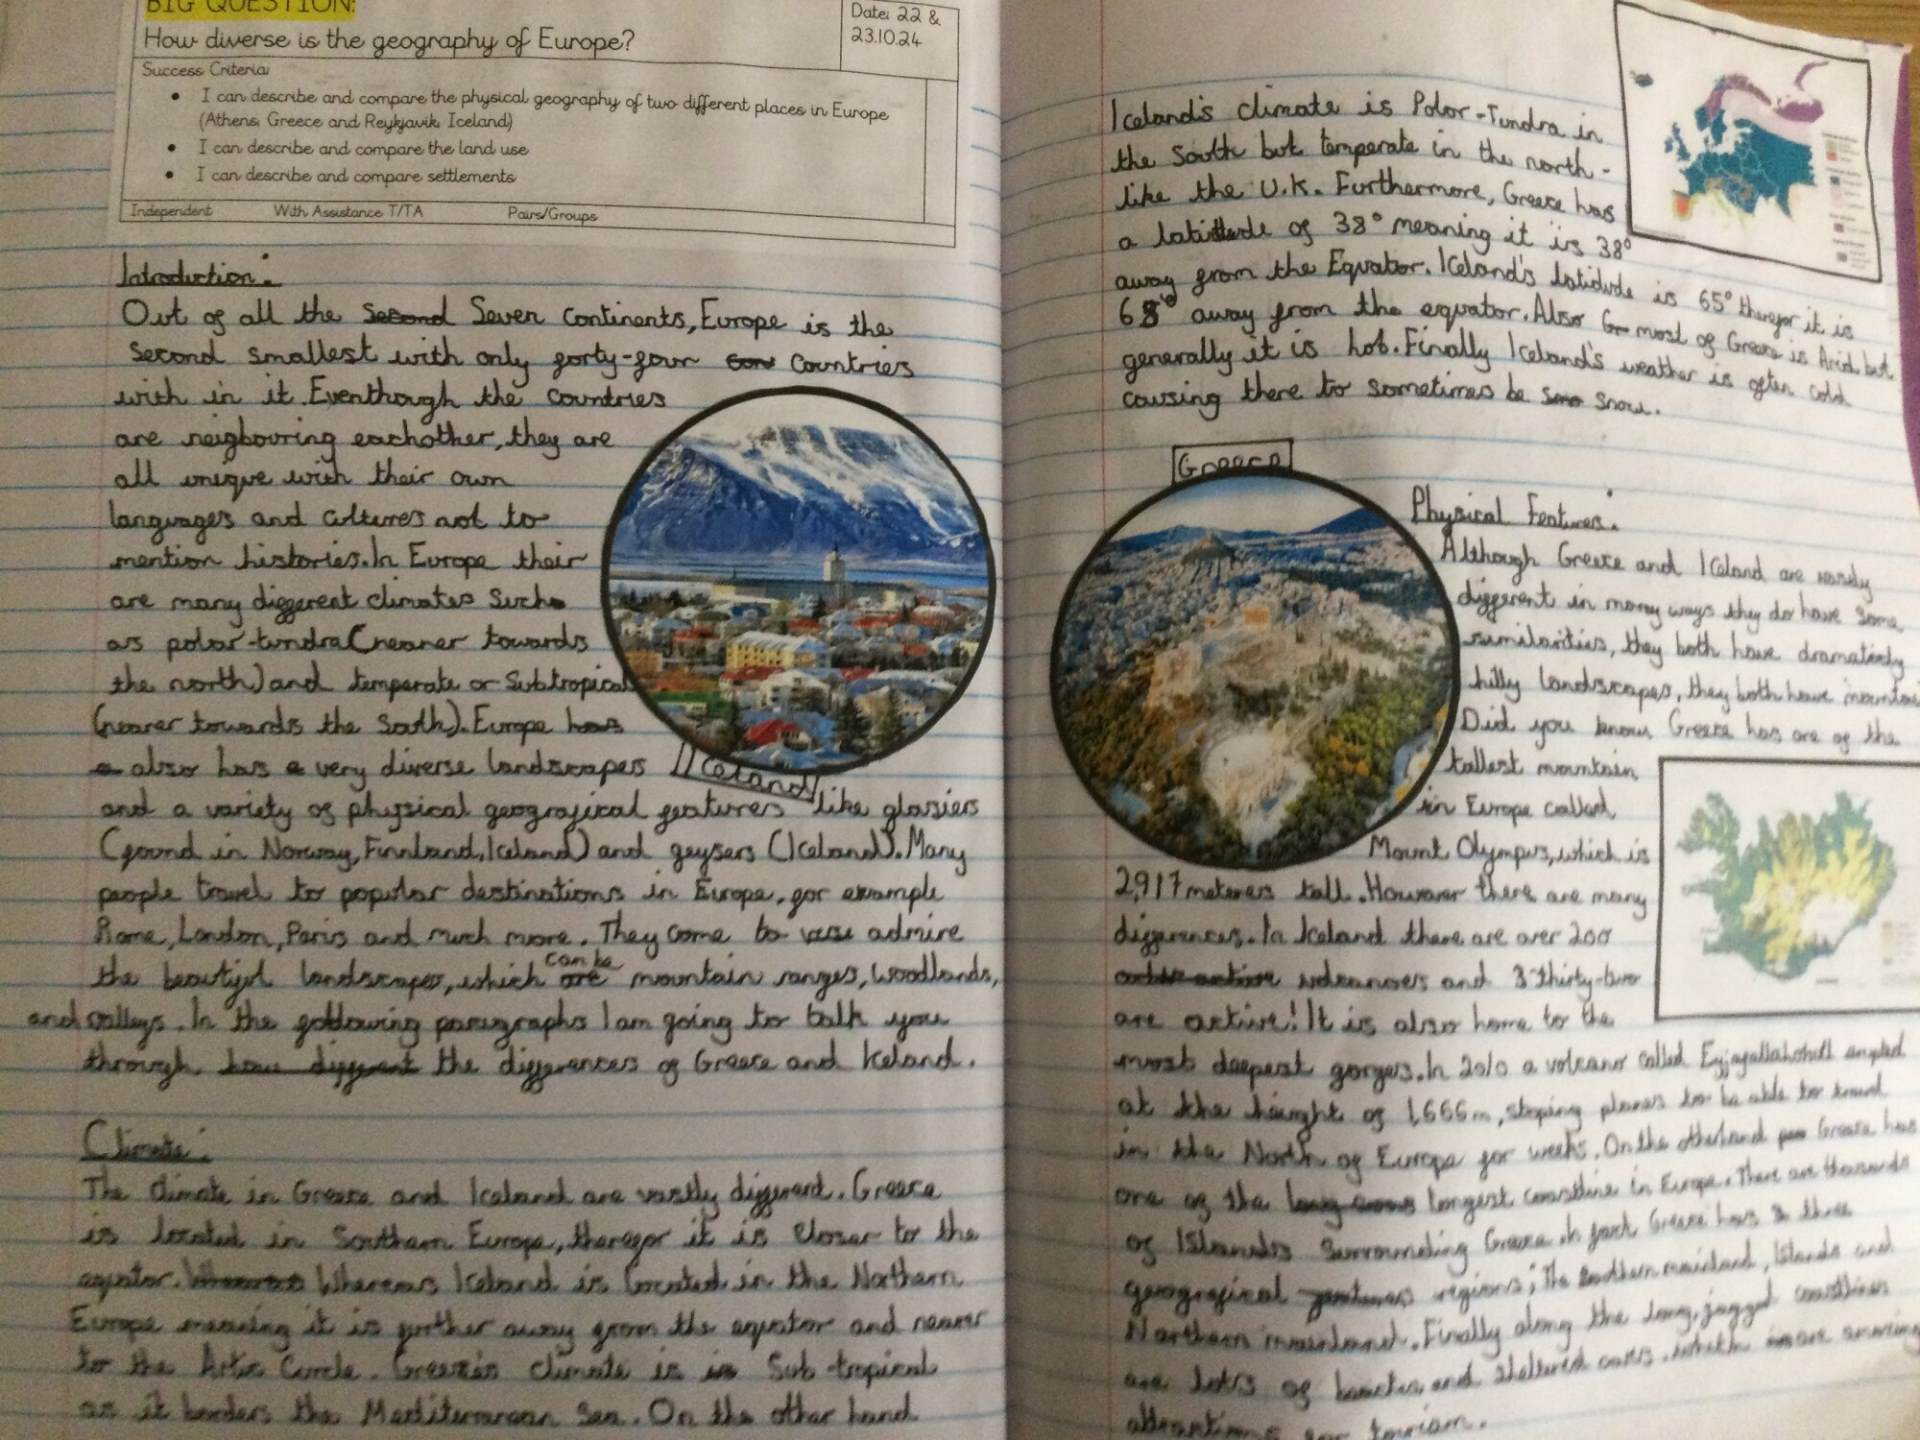 BIG QUESTION:
How diverse is the geography of Europe?
Date: 22 &
23.10.24
Success Criteria
I can describe and compare the physical geography of two different places in Europe
(Athens, Greece and Reykjavik, Iceland)
I can describe and compare the land use
I can describe and compare settlements
Independent With Assistance T/TA Pairs/Groups
Introduction:
Out of all the second Seven continents, Europe is the
second smallest with only forty-four countries
with in it. Eventhough the countries
are neigbouring eachother, they are
all unique with their own
languages and cultures not to
mention histories. In Europe their
are many different climates such
as polar-tundra (nearer towards
the north) and temperate or Subtropical
(nearer towards the South). Europe has
a also has a very diverse landscapes
Iceland
and a variety of physical geografical features like glasiers
(found in Norway, Finnland, Iceland) and geysers (Iceland). Many
people travel to popular destinations in Europe, for example
Rome, London, Paris and much more. They come to admire
the beautiful landscapes, which are can be mountain ranges, woodlands,
and valleys. In the following paragraphs I am going to talk you
through how different the differences of Greece and Iceland.
Climate:
The climate in Greece and Iceland are vastly different. Greece
is located in Southern Europe, therefor it is closer to the
equator. Whereas Iceland is located in the Northern
Europe meaning it is further away from the equator and nearer
to the Artic Circle. Greece's climate is is Sub-tropical
as it borders the Mediterranean Sea. On the other hand
Iceland's climate is Polor-Tundra in
the South but temperate in the north-
like the U.K. Furthermore, Greece has
a latitude of 38° meaning it is 38°
away from the Equator. Iceland's latidude is 65° therefor it is
65° away from the equator. Also Gr most of Greece is Arid but
generally it is hot. Finally Iceland's weather is often cold
causing there to sometimes be sno snow.
Greece
Physical Features:
Although Greece and Iceland are vastly
different in many ways they do have some
similarities, they both have dramaticly
hilly landscapes, they both have
Did you know Greece has one of the
tallest mountain
in Europe called
Mount Olympus, which is
2,917 meteres tall. However there are many
differences. In Iceland there are over 200
active volcanoes and 3 thirty-two
are active! It is also home to the
most deepest gorges. In 2010 a volcano called
at the height of 1,666m, stoping planes to be able to travel
in the North of Europe for weeks. On the otherhand Greece has
one of the longest coastline in Europe. There are thousands
of Islands surrounding Greece in fact Greece has 3 three
geografical features regions; The Southern mainland, Islands and
Northern mainland. Finally along the long, jagged coastlines
are lots of beaches and sheltered coves which are amazing
attractions for tourism.